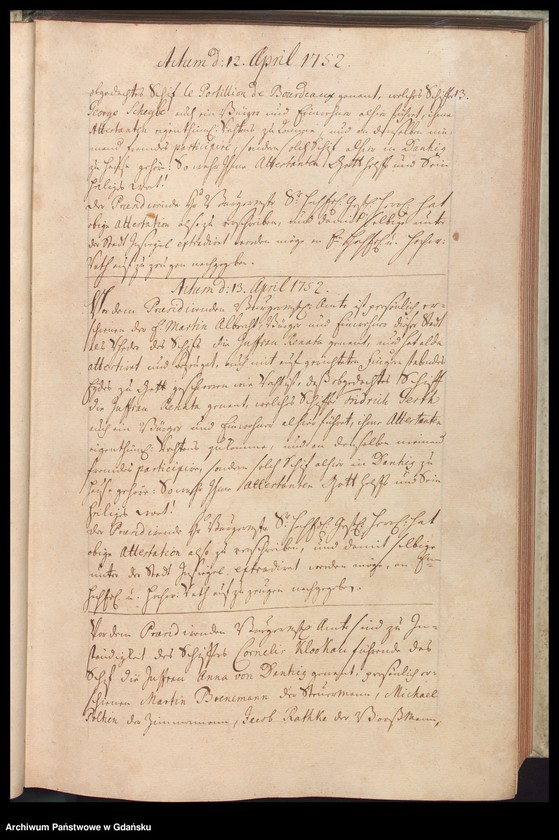 Actum d: 12. April 1752.
13.
obgedachtes Schif le Postillion de Bourdeaux genant, welches Schiffer
George auch ein Bürger und Einwohner alhier führet, ihme
Attestanten eigenthüml: Rechtens zu komme, und an demselben nie-
mand participire, sondern solch Schif alhier in Dantzig
zu Hause gehöre: So wahr Ihme Attestanten Gott helffe und Sein
Heiliges Wort!
Der Praesidirende Hr Bürgermstr Se hat
obige Attestation also zu verschreiben, und damit selbige unter
der Stadt Insiegel extradiret werden möge an E. u. Hochw:
Rath aufzuzeigen nachgegeben.
Actum d: 13. April 1752.
Vor dem Praesidirenden Bürgermstr Amte ist persönlich er-
schienen der H. Martin Albrecht Bürger und Einwohner dieser Stadt
als Rheder des Schifs die Juffrau Renata genant, und hat alda
attestiret und bezeuget, auch mit aufgerichteten Fingern stabenden
Eydes zu Gott geschworen wie Rechtens, daß obgedachtes Schiff
die Juffrau Renata genant, welches Schiffer Fridrich
auch ein Bürger und Einwohner alhier führet, ihme Attestanten
eigenthüml: Rechtens zukomme, und an demselben niemand
participire, sondern solch Schif alhier in Dantzig zu
Hause gehöre: So wahr Ihme Attestanten Gott helffe und Sein
Heiliges Wort!
Der Praesidirende Hr Bürgermstr Se hat
obige Attestation also zu verschreiben, und damit selbige
unter der Stadt Insiegel extradiret werden möge, an E.
u. Hochw: Rath aufzuzeigen nachgegeben.
Vor dem Praesidirenden Bürgermstr Amte sind zu In-
ständigkeit des Schiffers Cornelis Kloskau führende das
Schif die Juffrau Anna von Dantzig genant, persönlich er-
schienen Martin Brenemann der Steurmann, Michael
der Zimmermann, Jacob Rathke der Boodßmann,
Archiwum Państwowe w Gdańsku